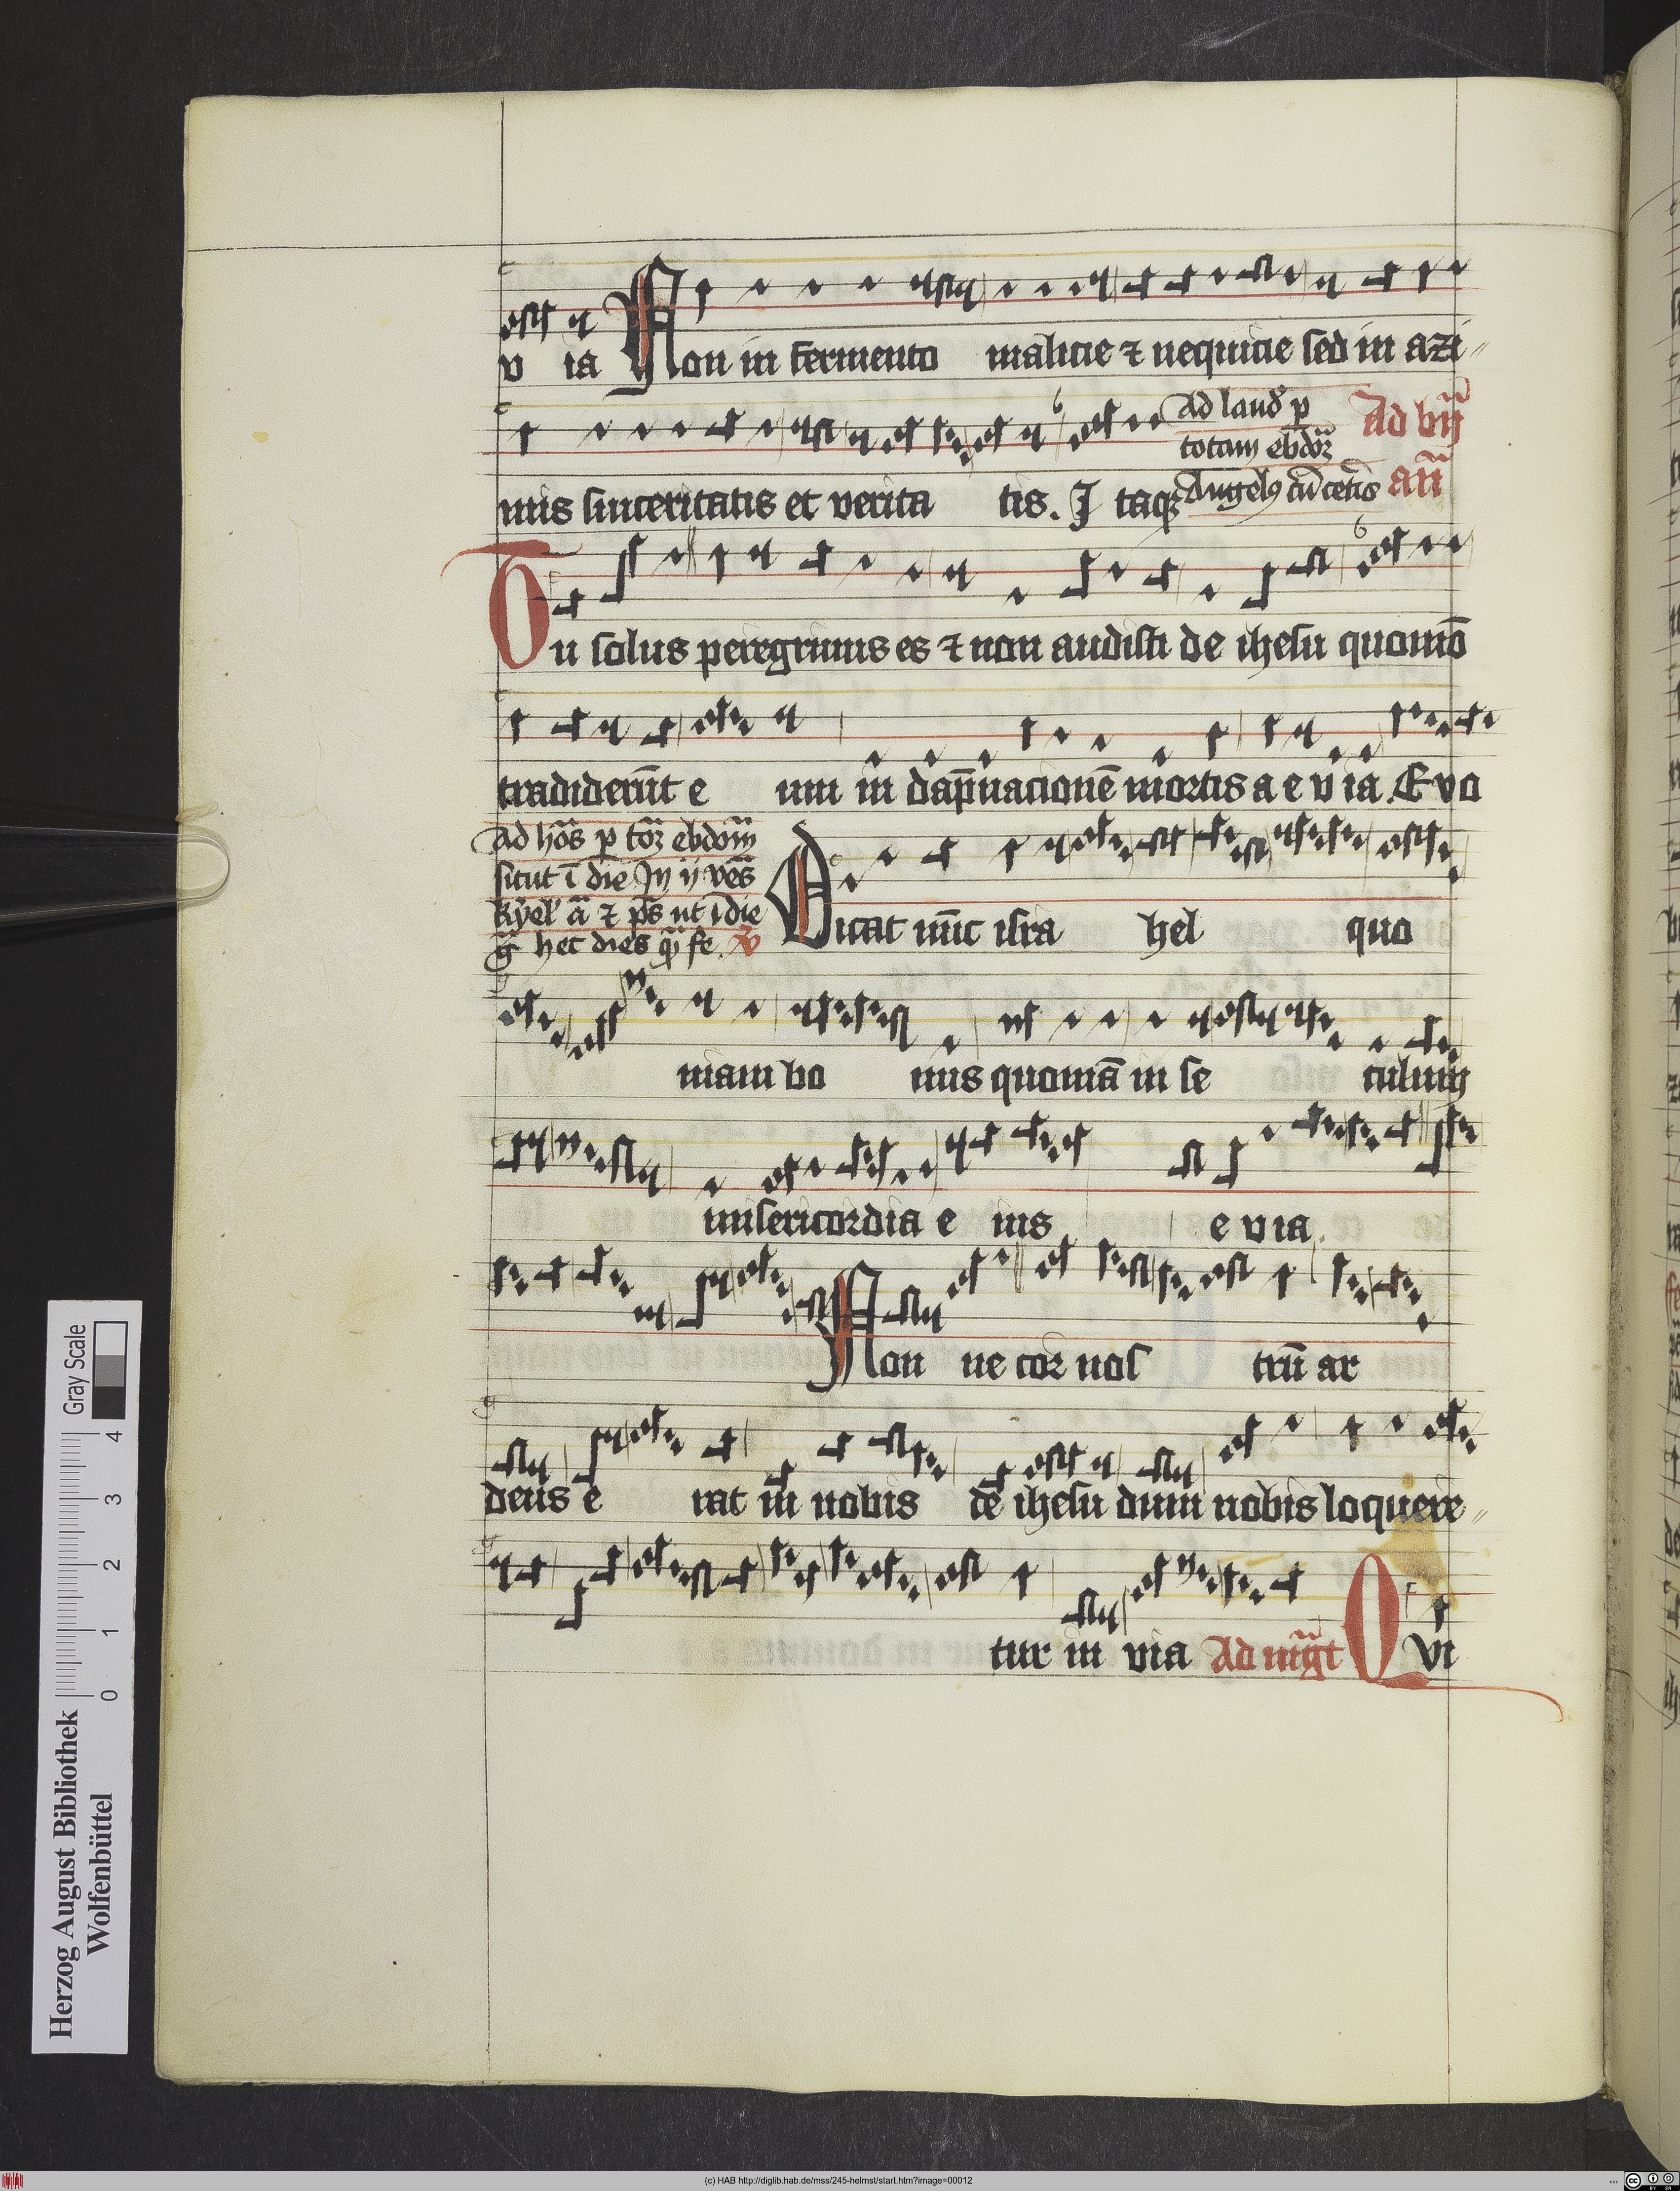 v ia Non in fermento malicie ⁊ nequicie sed in azi〃
Ad laud p
totam ebdoꝫ
Ad bn̄
mis sinceritatis et verita tis. I taqꝫ
Angelꝰ cū cetis an̄
Tu solus peregrinus es ⁊ non audisti de ihesu quomō
tradiderūt e um in dāpnacionē mortis a e v ia. E v o
Ad hōs p toꝫ ebdom̄
sicut ī die In ij ves̄
kyel' a ⁊ ps̄ ut ī die
g hec dies
Dicat nūc isra hel quo
niam bo nus quoniā in se culum
misericordia e ius e v ia.
Non ne cor nos trū ar
deus e rat in nobis de ihesu dum nobis loquere〃
tur in via Ad mḡt Qvi
Herzog August Bibliothek
Wolfenbüttel
0 1 2 3 4
Gray Scale
(c) HAB http://diglib.hab.de/mss/245-helmst/start.htm?image=00012